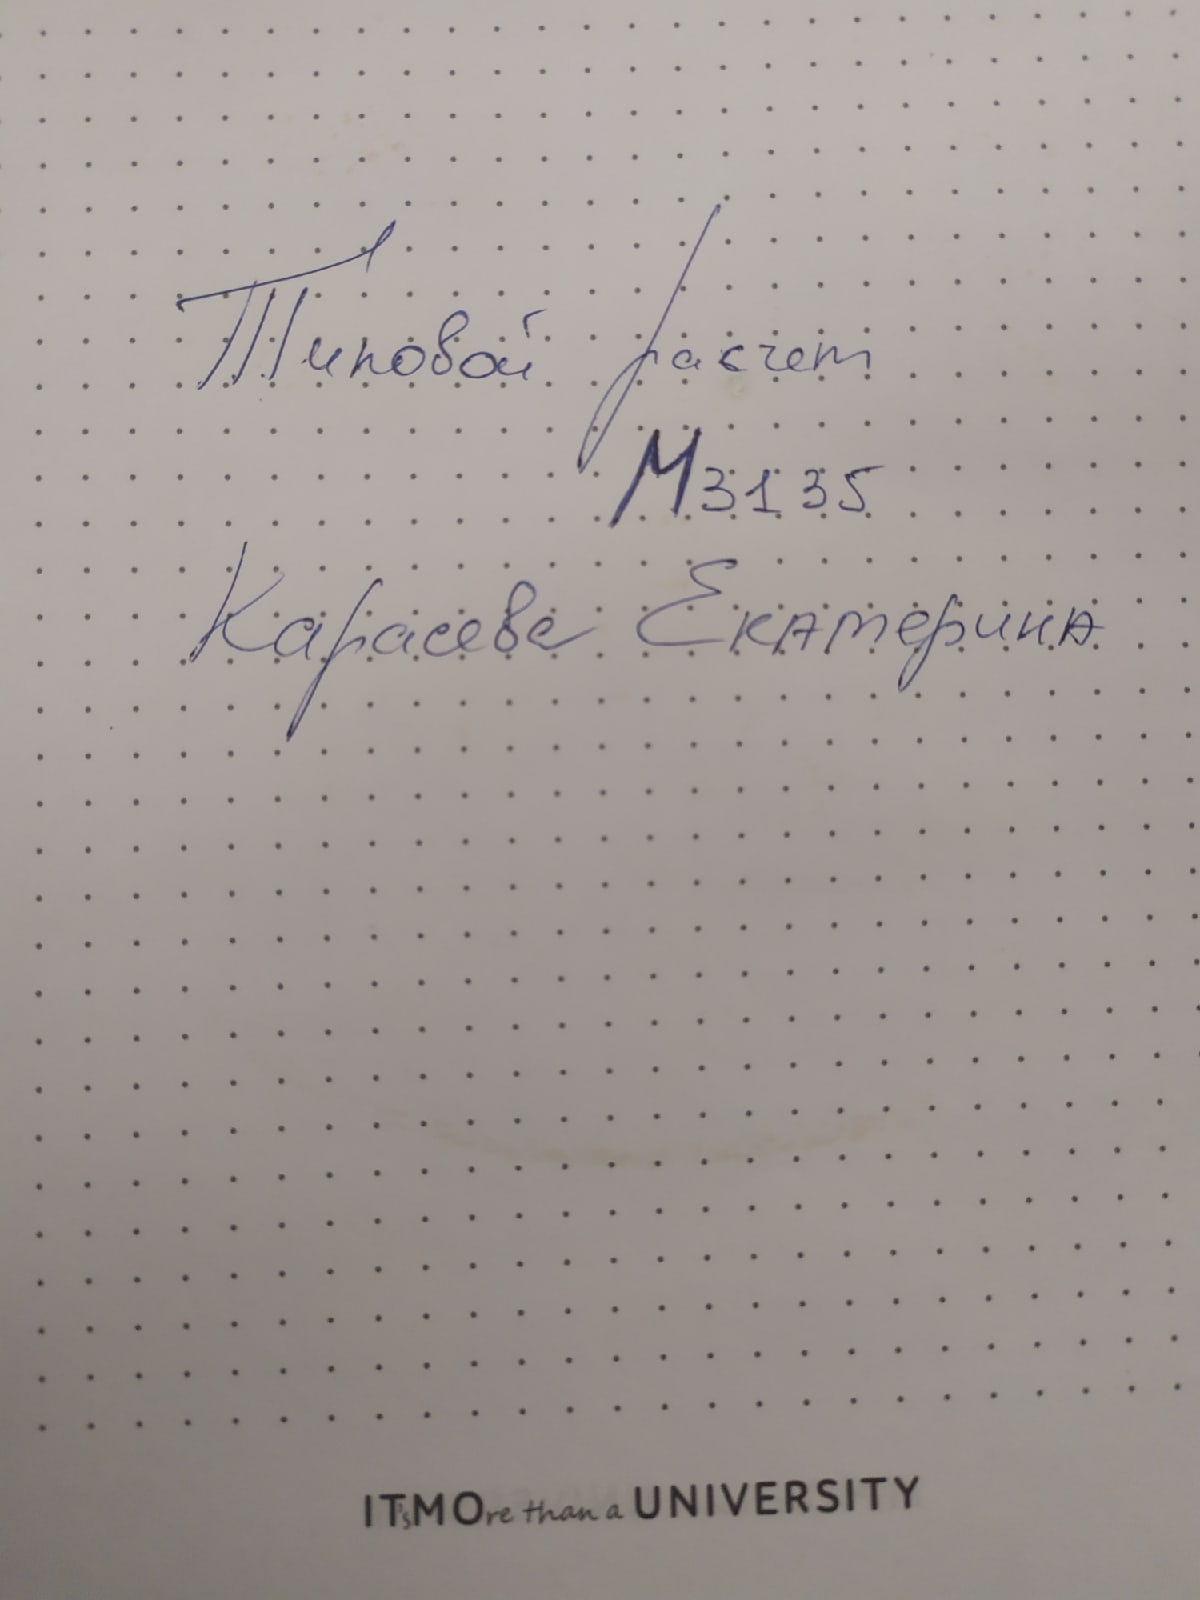 Типовой расчет
М3135
Карасева Екатерина
IT'sMOre than a UNIVERSITY